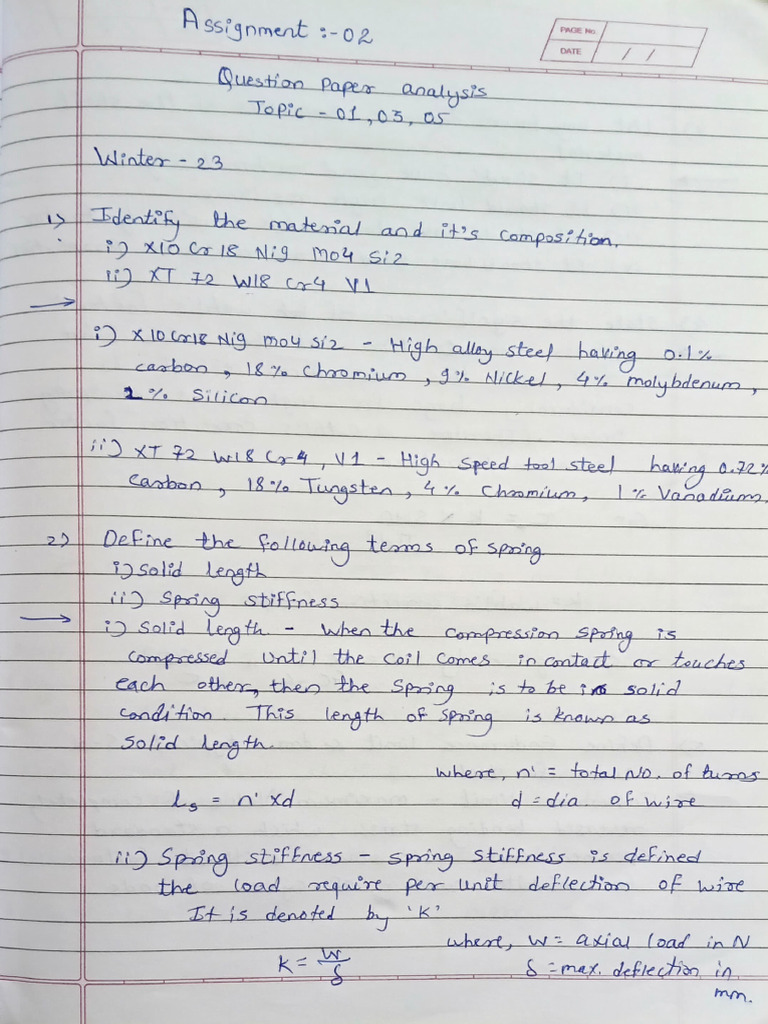 Assignment :- 02
PAGE No.
DATE / /
Question Paper analysis
Topic - 01, 03, 05
Winter - 23
1) Identify the material and it's composition.
i) X10 Cr 18 Ni9 Mo4 Si2
ii) XT 72 W18 Cr4 V1
→
i) X10Cr18 Ni9 Mo4 Si2 - High alloy steel having 0.1%
carbon, 18% Chromium, 9% Nickel, 4% molybdenum,
2% Silicon
ii) XT 72 W18 Cr4, V1 - High Speed tool steel having 0.72%
Carbon, 18% Tungsten, 4% Chromium, 1% Vanadium.
2) Define the following terms of spring
i) Solid length
ii) Spring stiffness
→ i) Solid length - When the compression spring is
compressed until the coil comes in contact or touches
each other, then the spring is to be in solid
condition. This length of spring is known as
Solid length.
where, n' = total No. of turns
Ls = n' x d d = dia. of wire
ii) Spring stiffness - spring stiffness is defined
the load require per unit deflection of wire
It is denoted by 'K'
where, W = axial load in N
K = W/δ δ = max. deflection in
mm.